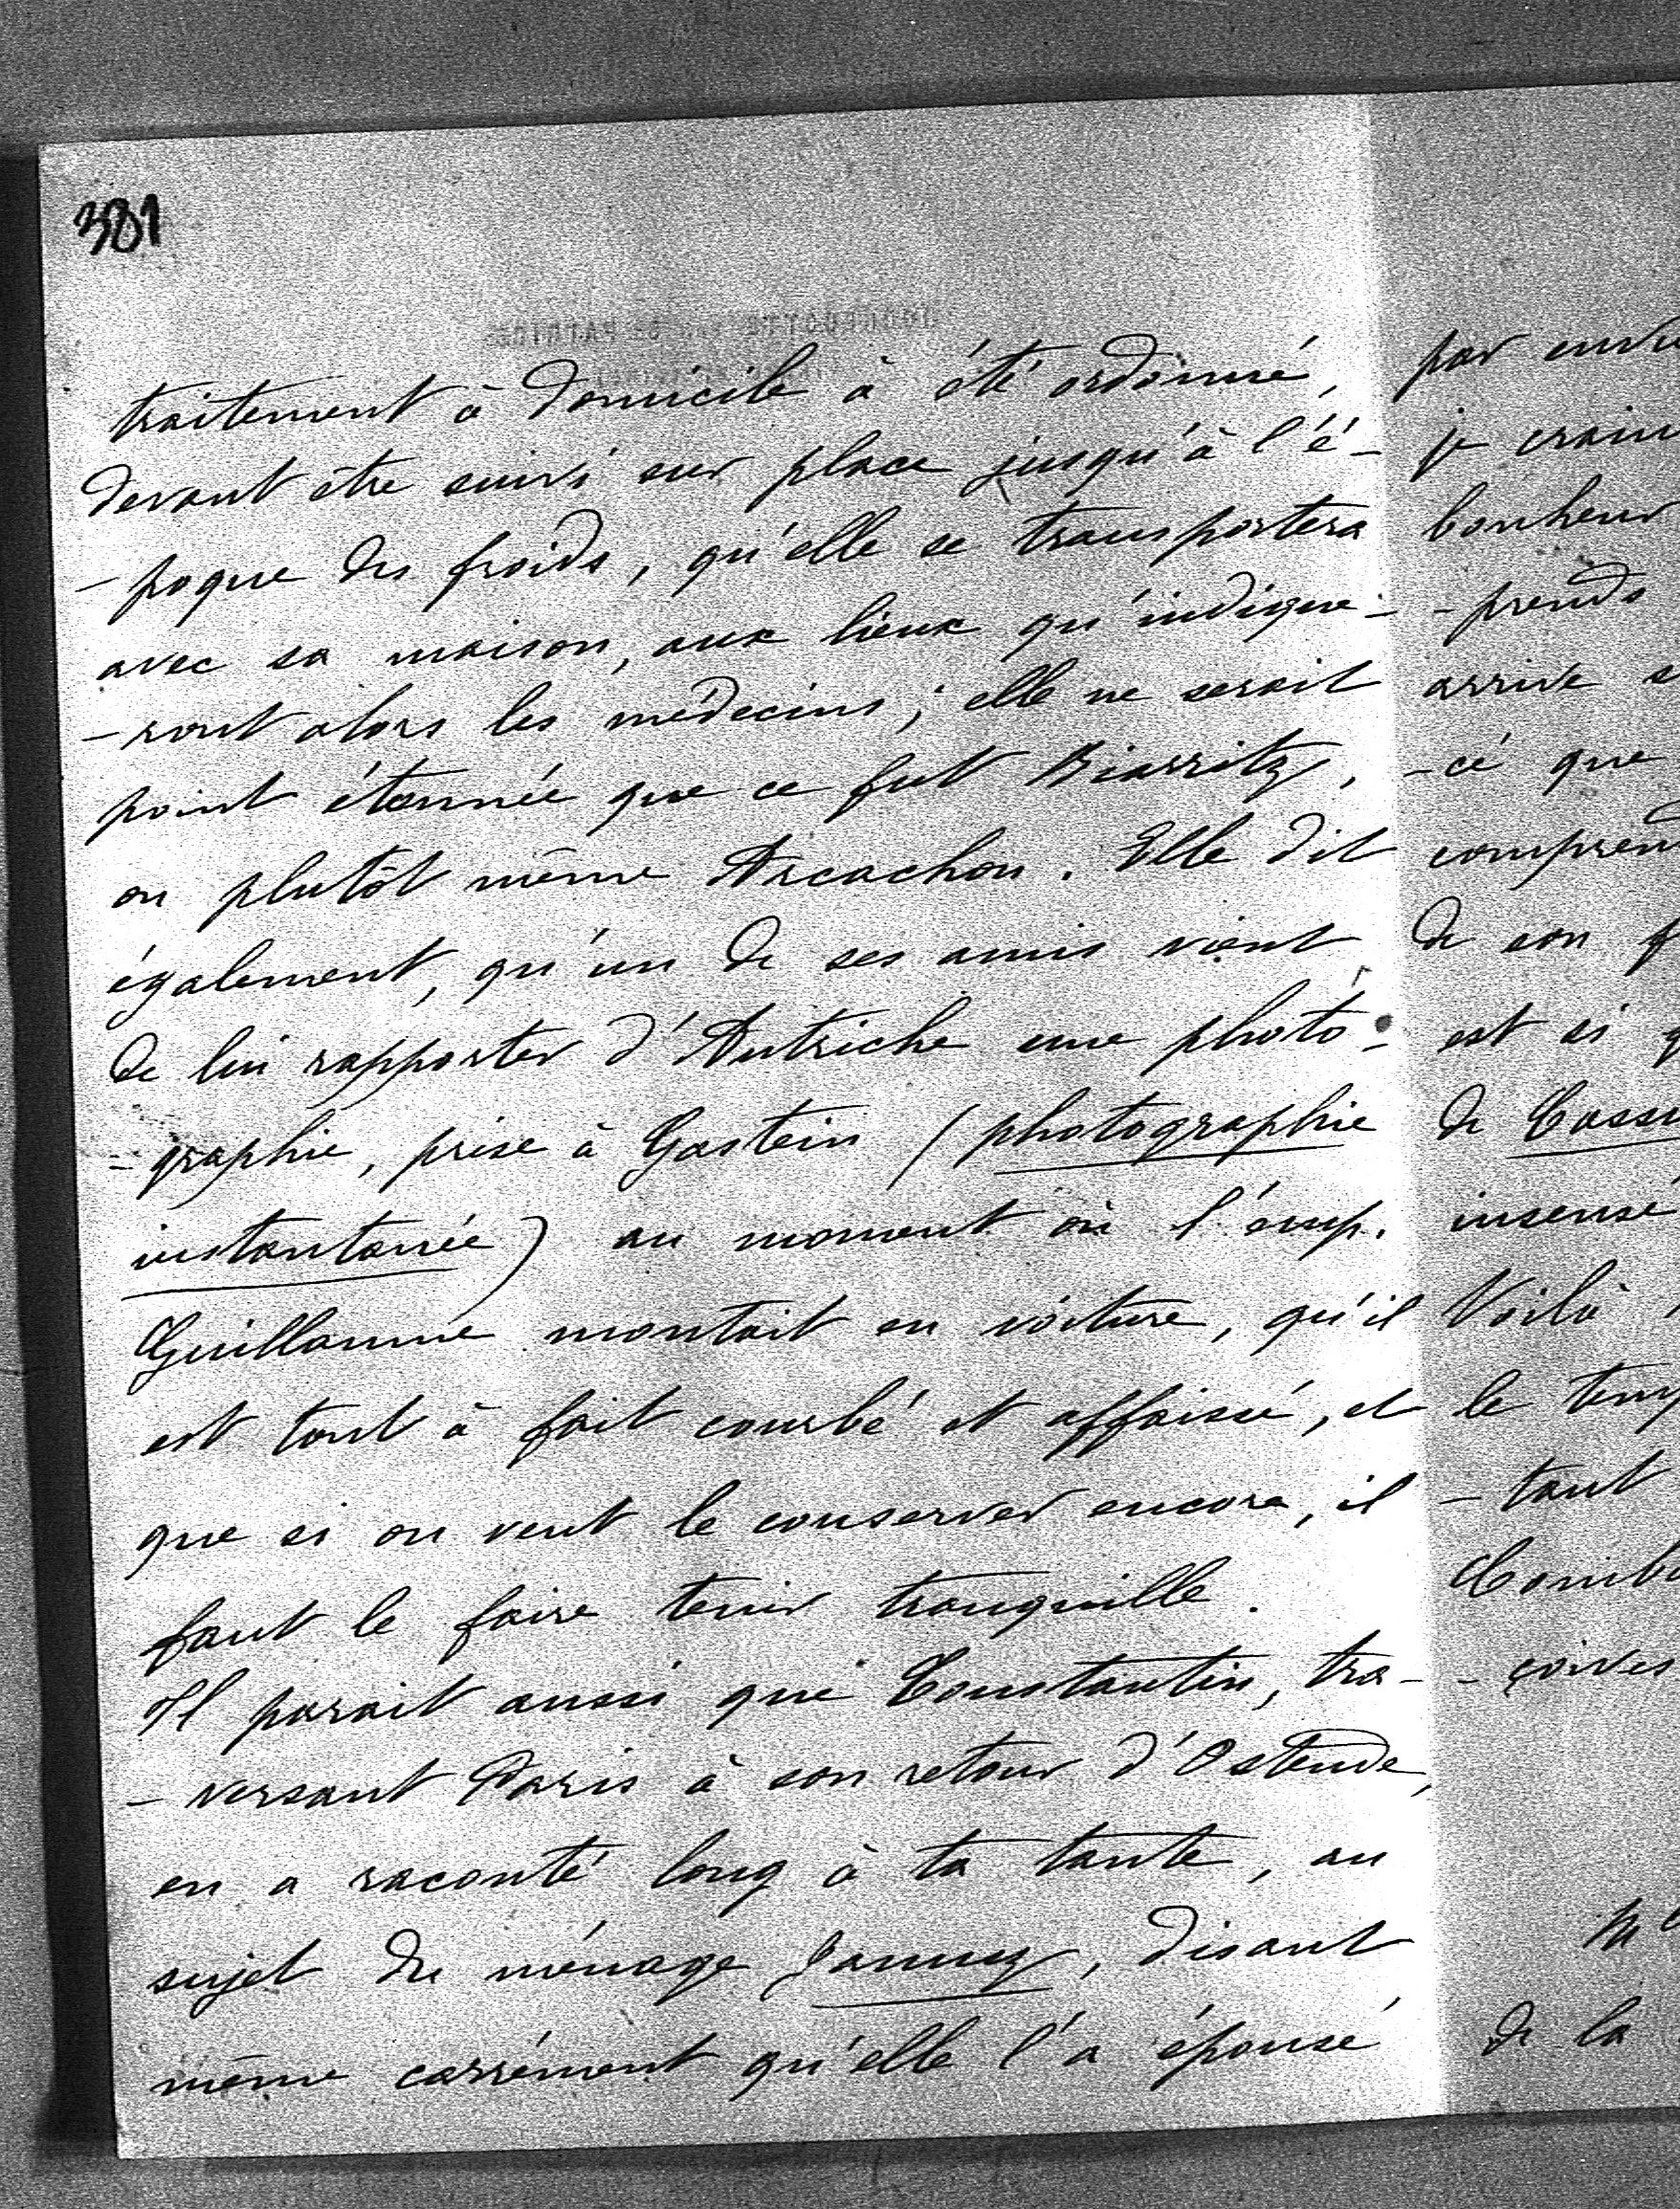 381
traitement à domicile à été ordonné,
devant être suivi sur place jusqu'à l'é-
-poque des froids, qu'elle se transportera
avec sa maison, aux lieux qu'indique-
-ront alors les médecins; elle ne serait
point étonnée que ce fut Biarritz,
ou plutôt même Arcachon. Elle dit
également, qu'un de ses amis vient
de lui rapporter d'Autriche une photo-
-graphie, prise à Gastein (photographie
instantanée) au moment où l'emp.
Guillaume montait en voiture, qu'il
est tout à fait courbé et affaissé, et
que si on veut le conserver encore, il
faut le faire tenir tranquille.
Il parait aussi que Constantin, tra-
-versant Paris à son retour d'Ostende,
en a raconté long à ta tante, au
sujet du ménage, disant
même carrément qu'elle l'a épousé
par
je
bonheur
-prends
arrive
-cé que
de son
est si
de
insensé
Voilà
le
-tant
-çoives
de la